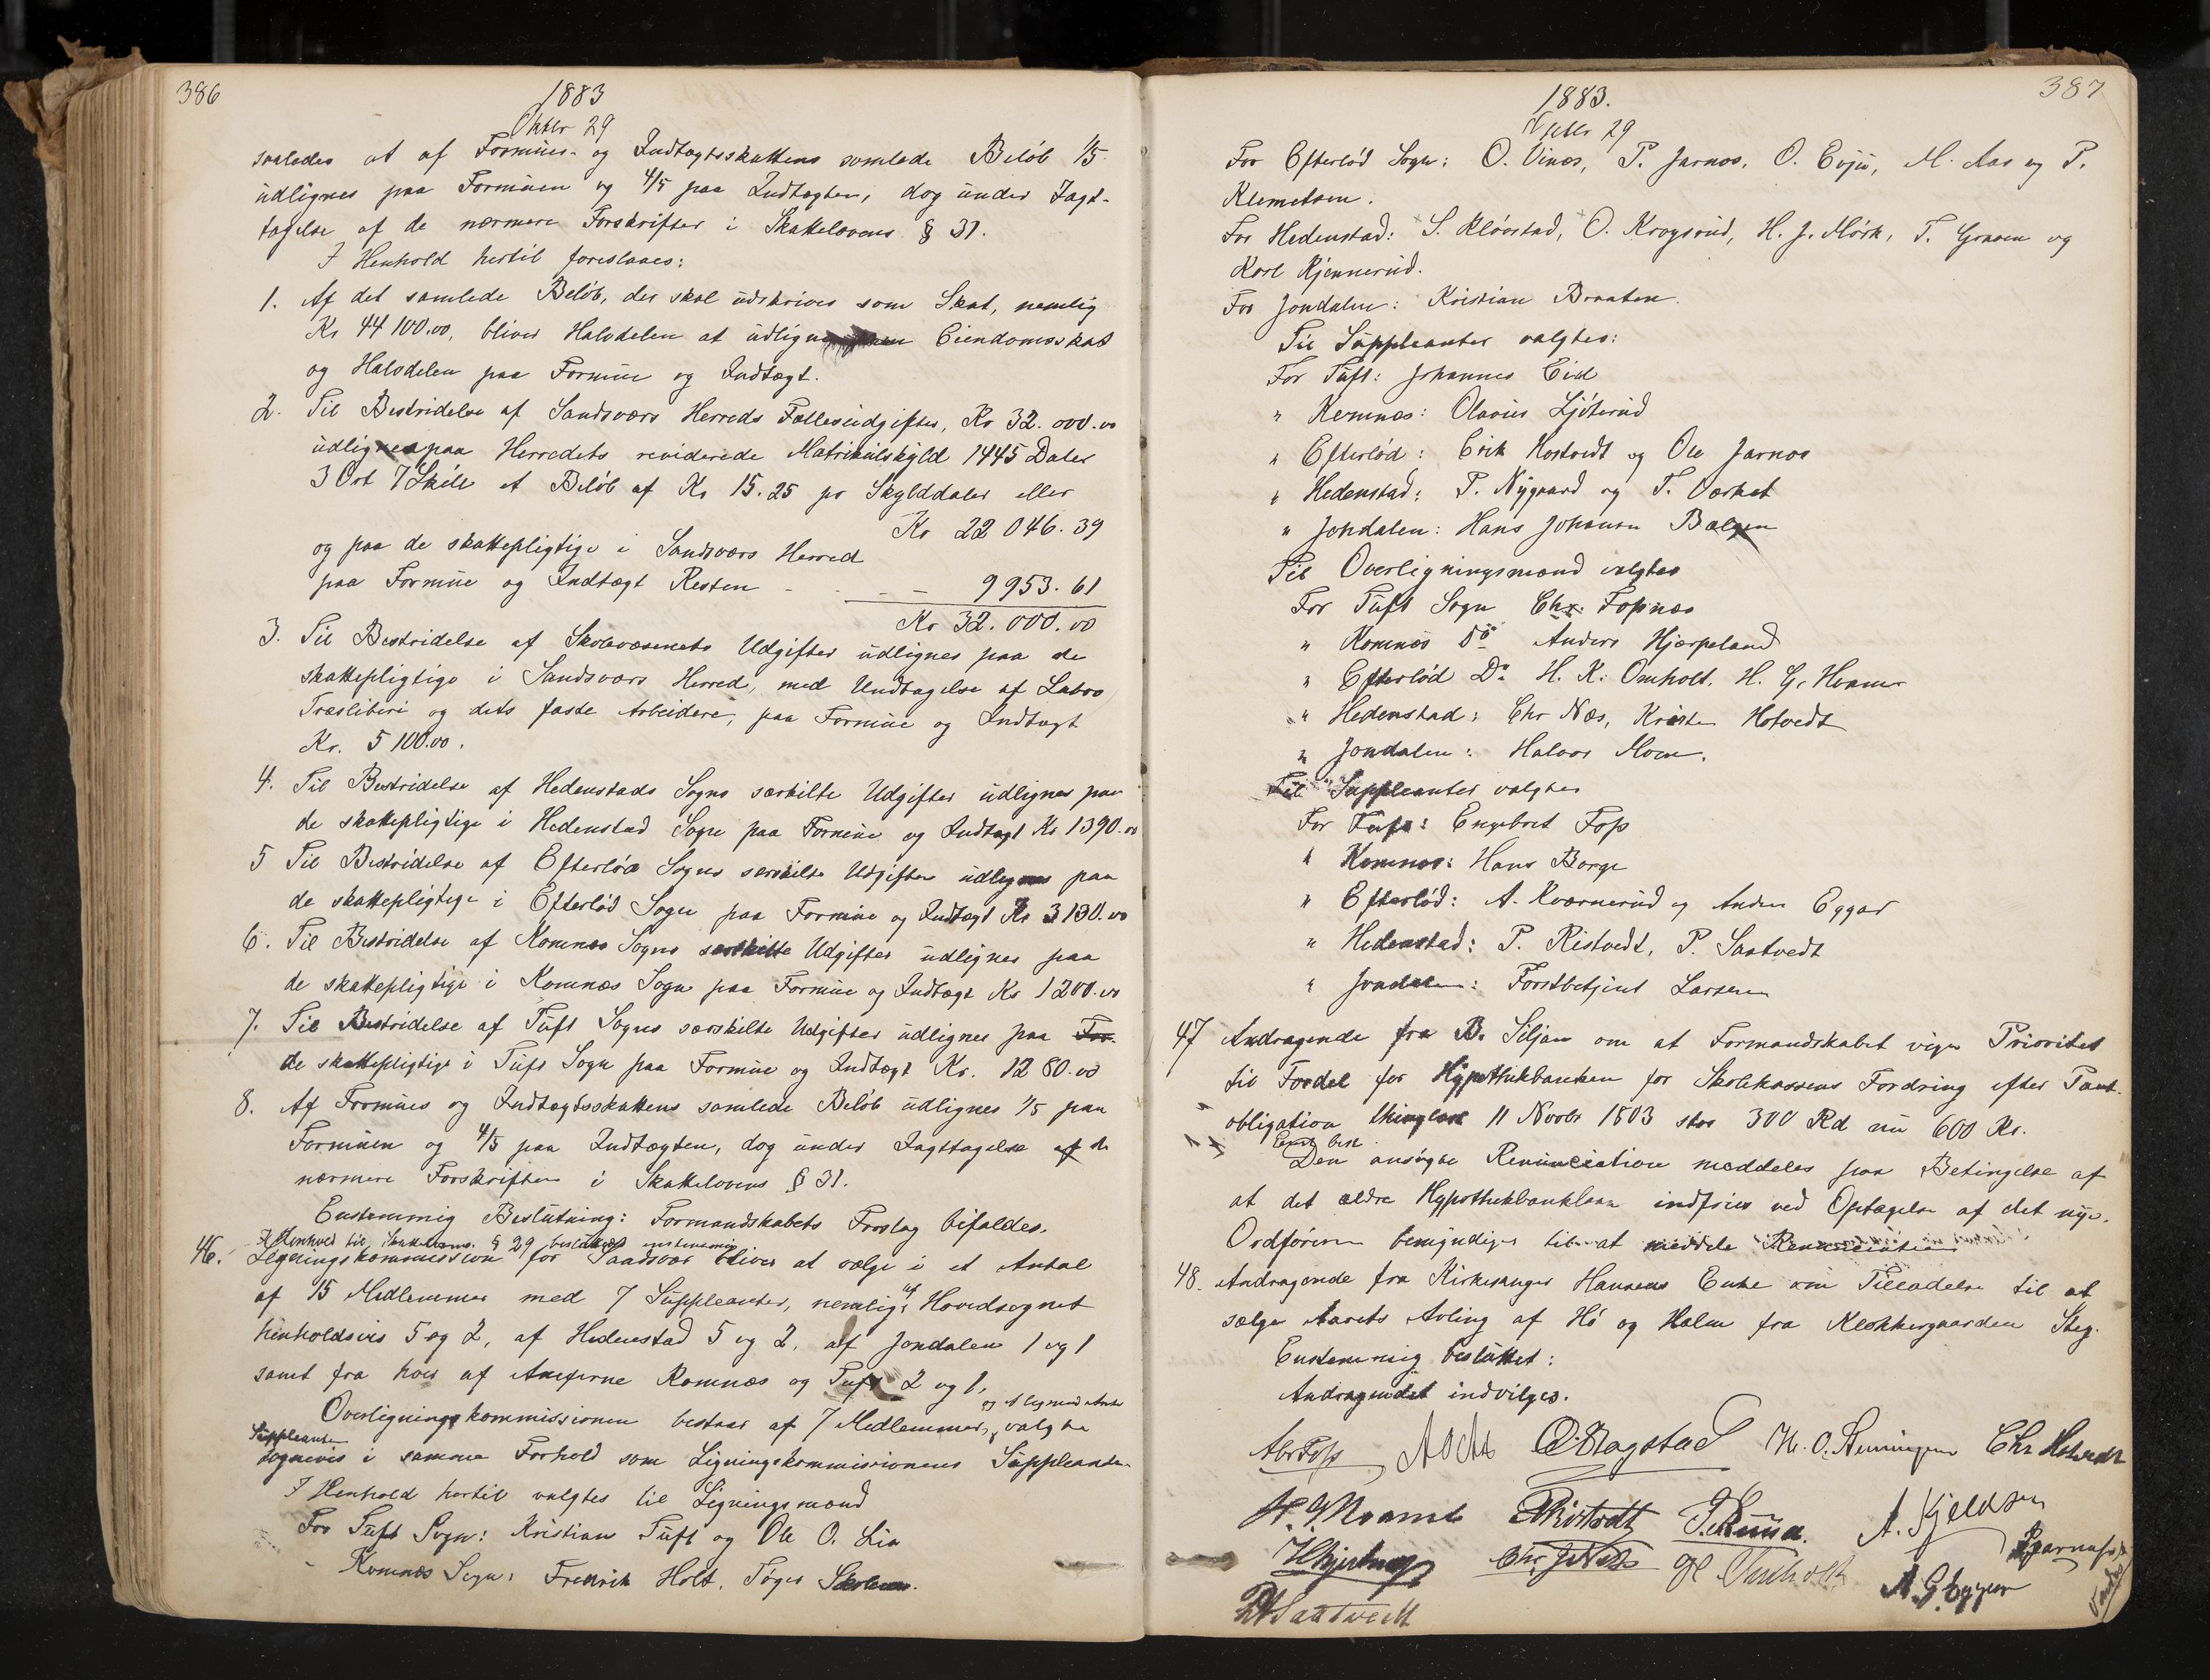 386
1883
Oktbr 29
saaledes at af Formues- og Indtægtsskattens samlede Beløb 1/5
udlignes paa Formuen og 4/5 paa Indtægten, dog under Iagt-
tagelse af de nærmere Forskrifter i Skattelovens § 31.
I Henhold hertil foreslaaes:
1. Af det samlede Beløb, der skal udskrives som Skat, nemlig
Kr 44 100.00, bliver Halvdelen at udligne Eiendomsskat
og Halvdelen paa Formue og Indtægt.
2. Til Bestridelse af Sandsværs Herreds Fællesudgifter, Kr 32.000.00
udlignes paa Herredets reviderede Matrikulskyld 1445 Daler
3 Ort 7 Skill et Beløb af Kr 15.25 pr Skylddaler eller
Kr 22 046.39
og paa de skattepligtige i Sandsværs Herred
paa Formue og Indtægt Resten - - - 9 953.61
Kr 32.000.00
3. Til Bestridelse af Skolevæsenets Udgifter udlignes paa de
skattepligtige i Sandsværs Herred, med Undtagelse af Labro
Træsliberi og dets faste Arbeidere, paa Formue og Indtægt
Kr. 5 100.00.
4. Til Bestridelse af Hedenstads Sogns særskilte Udgifter udlignes paa
de skattepligtige i Hedenstad Sogn paa Formue og Indtægt Kr 1390.00
5 Til Bestridelse af Efterløds Sogns særskilte Udgifter udlignes paa
de skattepligtige i Efterlød Sogn paa Formue og Indtægt Kr 3130.00
6. Til Bestridelse af Komnes Sogns særskilte Udgifter udlignes paa
de skattepligtige i Komnæs Sogn paa Formue og Indtægt Kr 1200.00
7. Til Bestridelse af Tufts Sogns særskilte Udgifter udlignes paa For
de skattepligtige i Tufts Sogn paa Formue og Indtægt Kr. 1280.00
8. Af Formues og Indtægtsskattens samlede Beløb udlignes 1/5 paa
Formuen og 4/5 paa Indtægten, dog under Iagttagelse af de
nærmere Forskrifter i Skattelovens § 31.
Enstemmig Beslutning: Formandskabets Forslag bifaldes.
I Henhold til Skattelovens § 29 besluttedes enstemmig
46. Ligningskommission for Sandsvær bliver at vælge i et Antal
af 15 Medlemmer med 7 Suppleanter, nemlig af Hovedsognet
henholdsvis 5 og 2, af Hedenstad 5 og 2, af Jondalen 1 og 1
samt fra hver af Anexerne Komnæs og Tuft 2 og 1.
Overligningskommissionen bestaar af 7 Medlemmer, valgte
Suppleanter
sognevis i samme Forhold som Ligningskommissionens Suppleanter
I Henhold hertil valgtes til Ligningsmænd
For Tuft Sogn: Kristian Tuft og Ole O. Lia
Komnæs Sogn: Fredrik Holt, Tøger
387
1883.
Oktbr 29
For Efterlød Sogn: O. Vinæs, P. Jarnæs, O. Evju, M. Aas og P.
Klemetsen.
For Hedenstad: S. Kløvstad, O. Krogsrud, H. J. Mørk, T. Graven og
Karl Kjennerud.
For Jondalen: Kristian Braaten.
Til Suppleanter valgtes:
For Tuft: Johannes Eid
" Komnæs: Olavus Ljøterud
" Efterlød: Erik Hostvedt og Ole Jarnæs
" Hedenstad: P. Nygaard og T. Værket
" Jondalen: Hans Johansen Bælgen
Til Overligningsmænd valgtes
For Tuft Sogn Chr. Fosnæs
" Komnæs Do Anders Hjærpeland
" Efterlød Do H. K. Omholt, H. G.
" Hedenstad: Chr Næs, Kristen Hotvedt
" Jondalen: Halvor Moen.
Til Suppleanter valgtes
For Tuft: Engebret Foss
" Komnæs: Hans Borge
" Efterlød: A. Kværnerud og Anders Eggar
" Hedenstad: P. Ristvedt, P. Saatvedt
" Jondalen: Forstbetjent Larsen
47 Andragende fra B. Siljan om at Formandskabet viger Prioritet
til Fordel for Hypothekbanken for Skolekassens Fordring efter Pant-
obligation thinglæst 11 Novbr 1803 stor 300 Rd nu 600 Kr.
Enst. besl.
Den ansøgte Renunciation meddeles paa Betingelse af
at det ældre Hypothekbanklaan indfries ved Optagelse af det nye.
Ordføreren bemyndiges til at meddele Renunciation
48. Andragende fra Kirkesanger Hansens Enke om Tilladelse til at
sælge Aarets Avling af Hø og Halm fra Klokkergaarden Steg.
Enstemmig besluttet:
Andragendet indvilges.
Abr Foss O. Stagstad Chr Hotvedt
P Ristvedt T. Ruud. A. Kjeldsen
Chr J Næs Omholt A. G. Eggar
P A Saatvedt